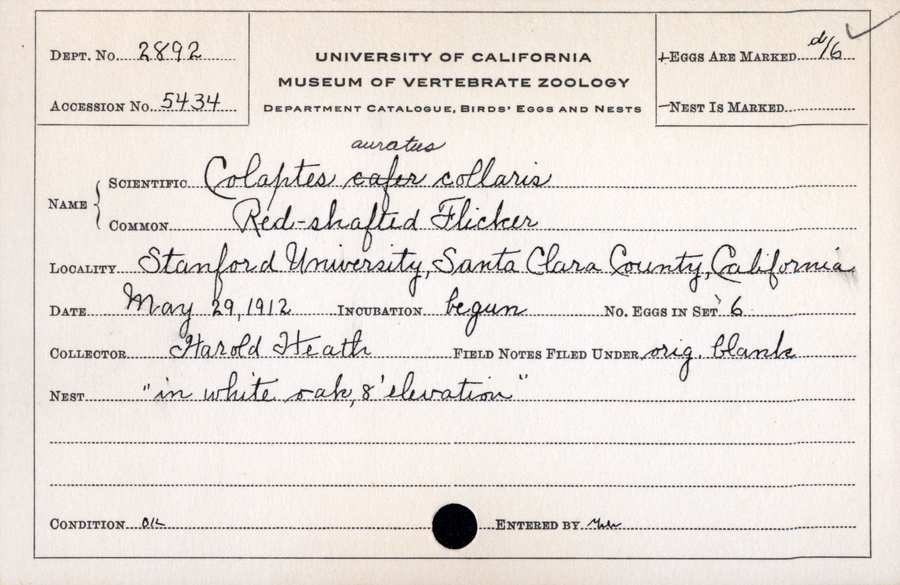 Dept. No. 2892
Accession No. 5434
UNIVERSITY OF CALIFORNIA
MUSEUM OF VERTEBRATE ZOOLOGY
Department Catalogue, Birds' Eggs and Nests
Eggs Are Marked d/6
Nest Is Marked
auratus
Name { Scientific Colaptes cafer collaris
Common Red-shafted Flicker
Locality Stanford University, Santa Clara County, California
Date May 29, 1912 Incubation begun No. Eggs in Set 6
Collector Harold Heath Field Notes Filed Under orig. blank
Nest "in white oak, 8' elevation"
Condition OK Entered by